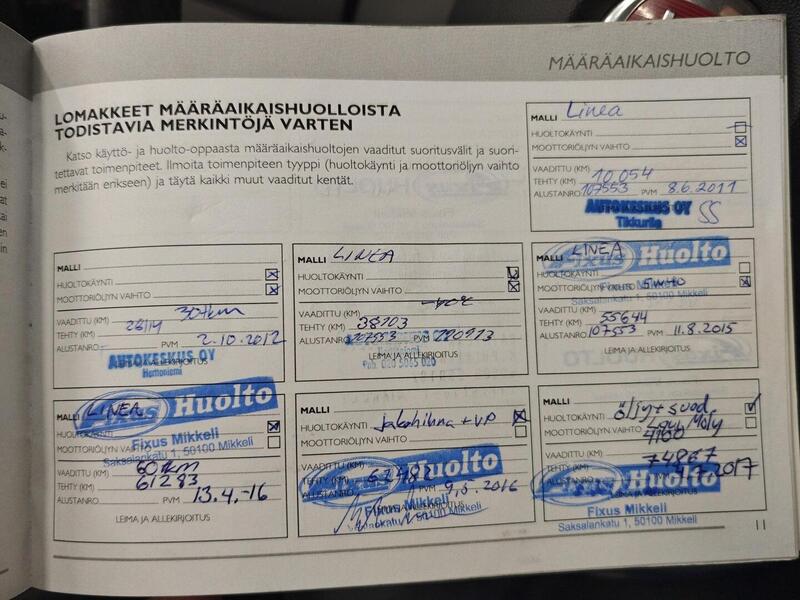 MÄÄRÄAIKAISHUOLTO
LOMAKKEET MÄÄRÄAIKAISHUOLLOISTA
TODISTAVIA MERKINTÖJÄ VARTEN
Katso käyttö- ja huolto-oppaasta määräaikaishuoltojen vaaditut suoritusvälit ja suori-
tettavat toimenpiteet. Ilmoita toimenpiteen tyyppi (huoltokäynti ja moottoriöljyn vaihto
merkitään erikseen) ja täytä kaikki muut vaaditut kentät.
MALLI Linea
HUOLTOKÄYNTI
MOOTTORIÖLJYN VAIHTO
VAADITTU (KM)
TEHTY (KM) 10 054
ALUSTANRO 107553 PVM 8.6.2011
AUTOKESKUS OY
Tikkurila
MALLI
HUOLTOKÄYNTI
MOOTTORIÖLJYN VAIHTO
VAADITTU (KM) 30tkm
TEHTY (KM) 26114
ALUSTANRO PVM 2.10.2012
LEIMA JA ALLEKIRJOITUS
AUTOKESKUS OY
Herttoniemi
MALLI LINEA
HUOLTOKÄYNTI
MOOTTORIÖLJYN VAIHTO
VAADITTU (KM)
TEHTY (KM) 38103
ALUSTANRO 107553 PVM 220913
LEIMA JA ALLEKIRJOITUS
MALLI LINEA
Fixus Huolto
HUOLTOKÄYNTI
Fixus Mikkeli
MOOTTORIÖLJYN VAIHTO 5W40
Saksalankatu 1, 50100 Mikkeli
VAADITTU (KM)
TEHTY (KM) 55644
ALUSTANRO 107553 PVM 11.8.2015
LEIMA JA ALLEKIRJOITUS
MALLI LINEA
Fixus Huolto
HUOLTOKÄYNTI
Fixus Mikkeli
MOOTTORIÖLJYN VAIHTO
Saksalankatu 1, 50100 Mikkeli
VAADITTU (KM) 60tkm
TEHTY (KM) 61283
ALUSTANRO PVM 13.4.-16
LEIMA JA ALLEKIRJOITUS
MALLI
HUOLTOKÄYNTI Jakohihna + VP
MOOTTORIÖLJYN VAIHTO
VAADITTU (KM)
TEHTY (KM) 62482
Huolto
ALUSTANRO PVM 9.5.2016
Fixus Mikkeli
50100 Mikkeli
MALLI
HUOLTOKÄYNTI öljyt + suod.
MOOTTORIÖLJYN VAIHTO Liqui Moly
4100
VAADITTU (KM)
TEHTY (KM) 74867
ALUSTANRO
Fixus Huolto
LEIMA JA ALLEKIRJOITUS
Fixus Mikkeli
Saksalankatu 1, 50100 Mikkeli
11